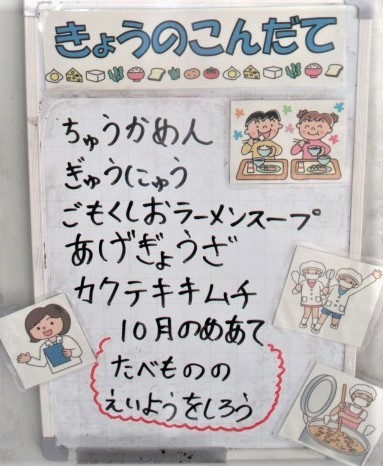 きょうのこんだて
ちゅうかめん
ぎゅうにゅう
ごもくしおラーメンスープ
あげぎょうざ
カクテキキムチ
10月のめあて
たべものの
えいようをしろう